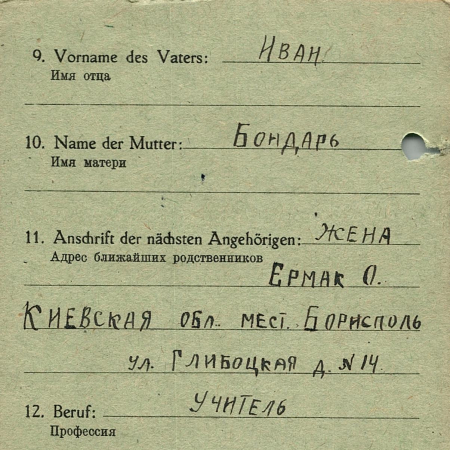 9. Vorname des Vaters: Иван
Имя отца
10. Name der Mutter: Бондарь
Имя матери
11. Anschrift der nächsten Angehörigen: жена
Адрес ближайших родственников
Ермак О.
Киевская обл. мест. Борисполь
ул. Глибоцкая д. N 14
12. Beruf: учитель
Профессия